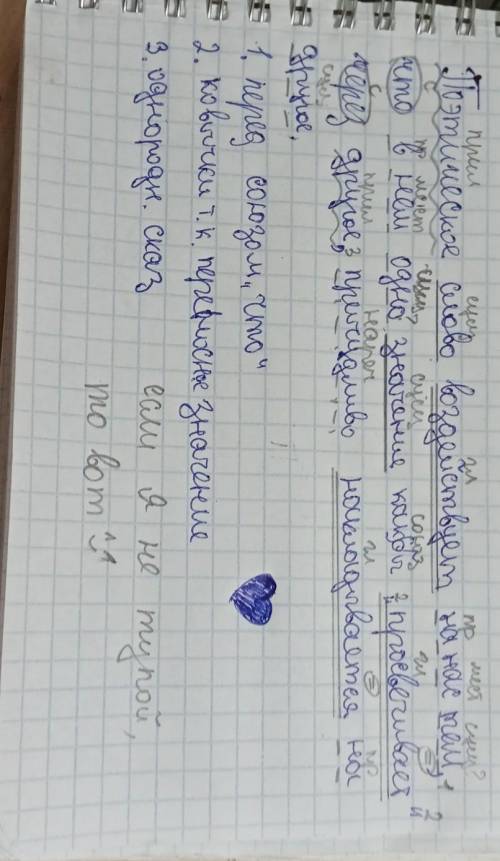 Поэтическое слово воздействует на нас тем,
что в нем одно значение какбы "просвечивает"
через другое, причудливо накладывается на
другое.
1. перед союзом "что"
2. ковычки т.к. переносное значение
3. однородн. сказ
если я не тупой,
то вот ^^